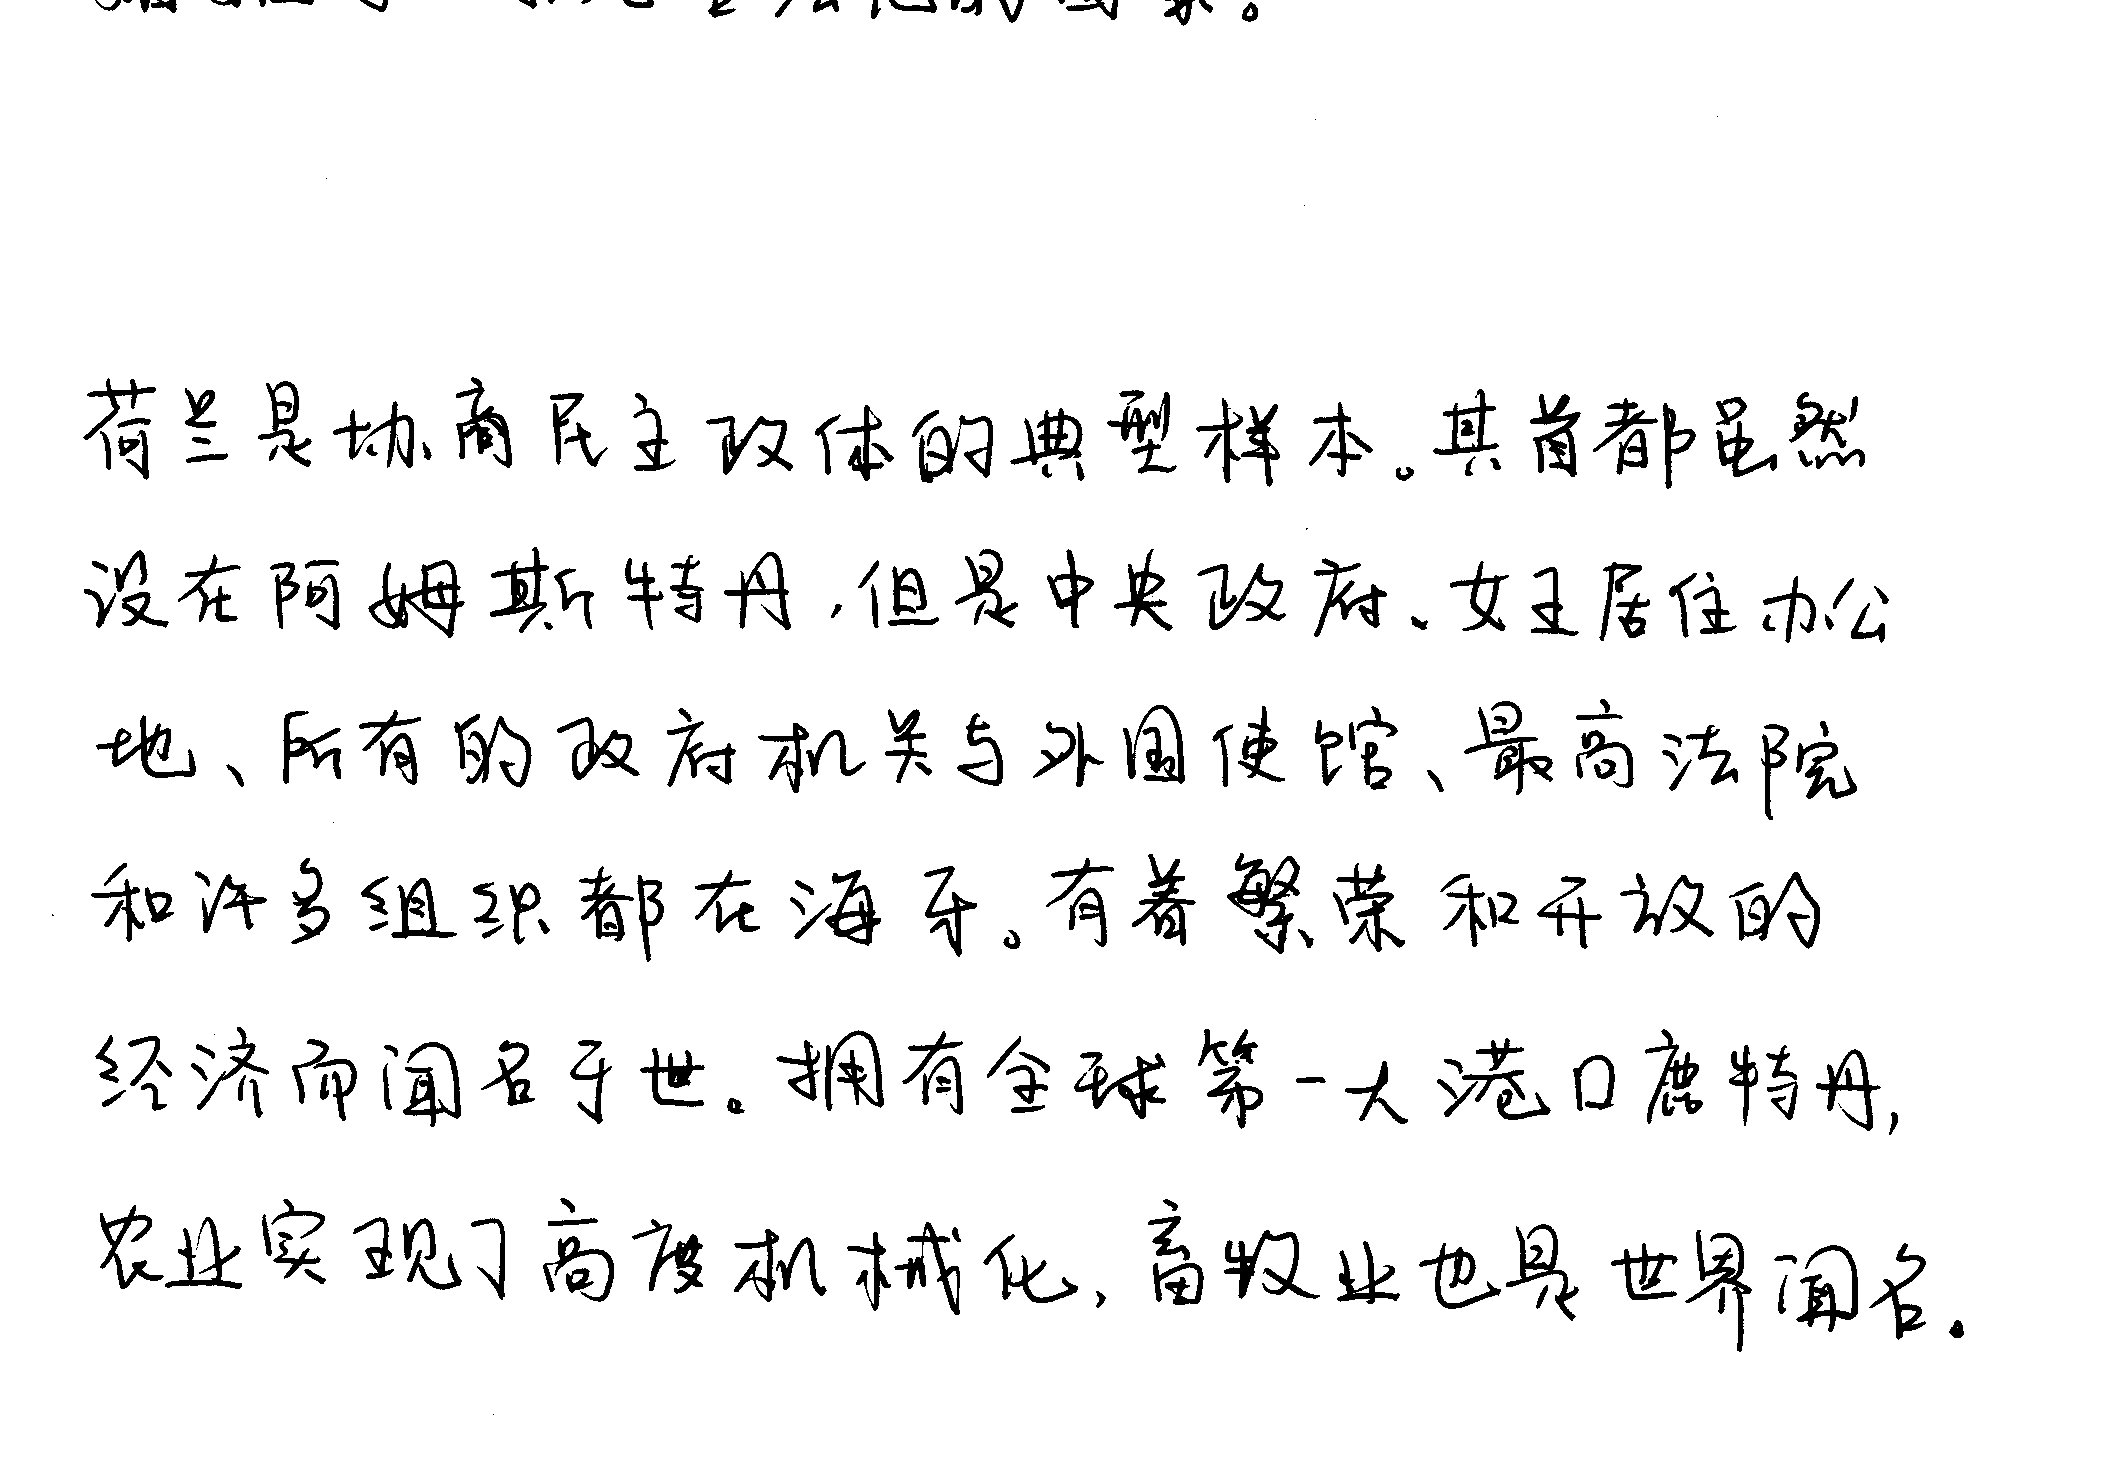 荷兰是协商民主政体的典型样本。其首都虽然
设在阿姆斯特丹，但是中央政府、女王居住办公
地、所有的政府机关与外国使馆、最高法院
和许多组织都在海牙。有着繁荣和开放的
经济而闻名于世。拥有全球第一大港口鹿特丹，
农业实现了高度机械化，畜牧业也是世界闻名。